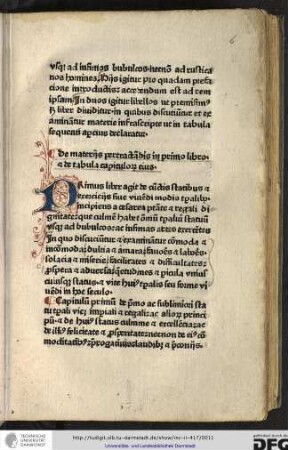 6
vsq3 ad infimos bubulcos: necnō ad rustica
nos homines. Hijs igitur pro quadam prefa
cione introductis: accedendum est ad rem
ipsam. In duos igitur libellos vt premisim9
hic liber diuiditur. in quibus discutiūtur et ex
aminātur materie infrascripte vt in tabula
sequenti apcius declaratur.
De materijs pertractādis in primo libro
et de tabula capitulorū eius.
Primus liber agit de cūctis statibus et
exercicijs siue viuēdi modis tpalib9
incipiens a cesarea prāte et regali di
gnitate: que culmē habet ōniū tpaliū statuū
vsq3 ad bubulcos: ac infimas artes exercētes
In quo discutiūtur et examinātur cōmoda et
incōmoda: dulcia et amara: fauores et labores
solacia et miserie: facilitates et difficultates:
prospera et aduersa: quietudines et picula vnius
cuiusq3 status. et vite hui9 tpalis seu forme vi
uēdi in hoc seculo.
Capitulū primū de pmo ac sublimiori sta
tu tpali viz impiali et regali: ac alioꝝ princi
pū. et de hui9 status culmine et excellēcia: ac
de illi9 felicitate et prosperitate: necnon de ei9 cō
moditatib9: prerogatiuis: laudibus et preconijs.
TECHNISCHE UNIVERSITÄT DARMSTADT
http://tudigit.ulb.tu-darmstadt.de/show/inc-ii-417/0011
Universitäts- und Landesbibliothek Darmstadt
gefördert durch
DFG